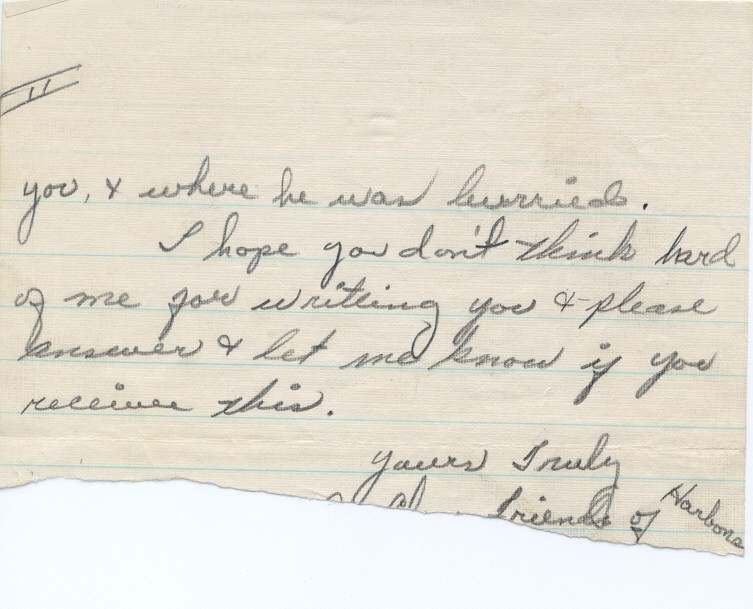 11
you, & where he was burried.
I hope you don't think hard
of me for writting you & please
answer & let me know if you
receive this.
Yours Truly
friends of Harbons